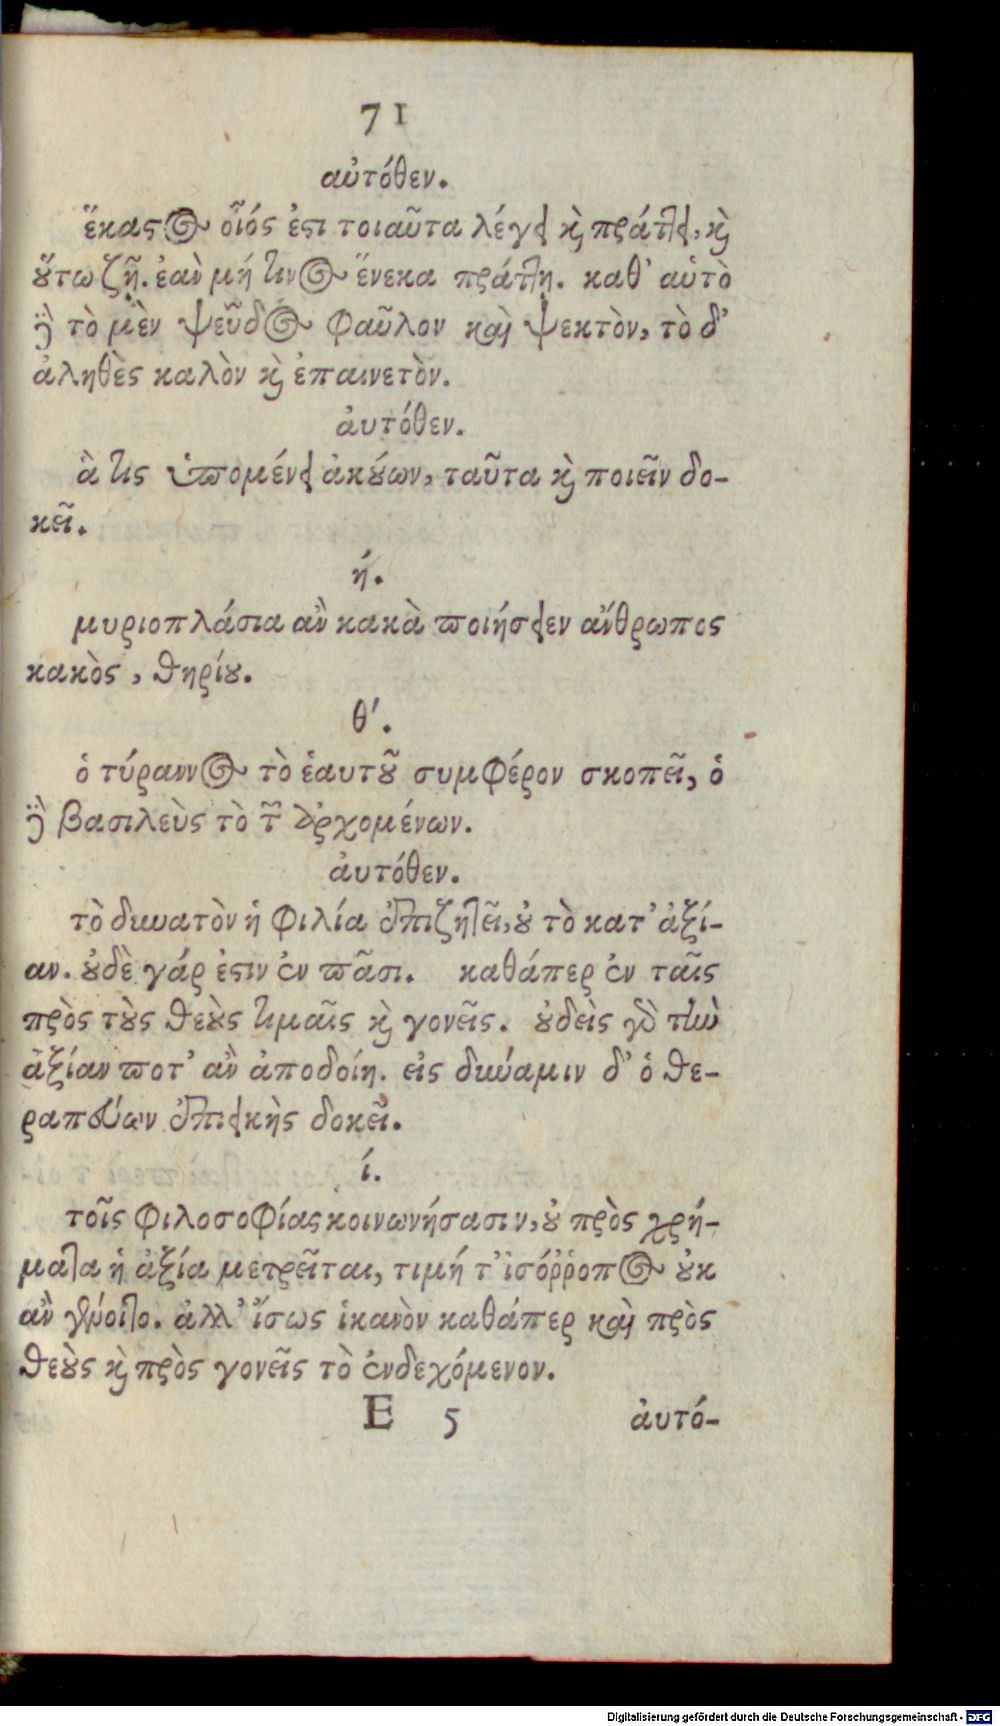 71
αὐτόθεν.
ἕκαϛος οἷός ἐϛι τοιαῦτα λέγει καὶ πράττει, καὶ
οὕτω ζῇ. ἐὰν μή τινος ἕνεκα πράττῃ. καθ' αὑτὸ
δὲ τὸ μὲν ψεῦδος φαῦλον καὶ ψεκτὸν, τὸ δ'
ἀληθὲς καλὸν καὶ ἐπαινετὸν.
ἀυτόθεν.
ἃ τις ὑπομένει ἀκούων, ταῦτα καὶ ποιεῖν δο-
κεῖ.
ή.
μυριοπλάσια ἂν κακὰ ποιήσειεν ἄνθρωπος
κακὸς, θηρίου.
θ'.
ὁ τύραννος τὸ ἑαυτοῦ συμφέρον σκοπεῖ, ὁ
δὲ βασιλεὺς τὸ τῶν ἀρχομένων.
ἀυτόθεν.
τὸ δυνατὸν ἡ φιλία ἐπιζητεῖ, οὐ τὸ κατ' ἀξί-
αν. οὐδὲ γάρ ἐϛιν ἐν πᾶσι. καθάπερ ἐν ταῖς
πρὸς τοὺς θεοὺς τιμαῖς καὶ γονεῖς. οὐδεὶς γὰρ τὴν
ἀξίαν ποτ' ἂν ἀποδοίη. εἰς δύναμιν δ' ὁ θε-
ραπεύων ἐπιεικὴς δοκεῖ.
ί.
τοῖς φιλοσοφίας κοινωνήσασιν, οὐ πρὸς χρή-
ματα ἡ ἀξία μετρεῖται, τιμή τ' ἰσόῤῥοπος οὐκ
ἂν γένοιτο. ἀλλ' ἴσως ἱκανὸν καθάπερ καὶ πρὸς
θεοὺς καὶ πρὸς γονεῖς τὸ ἐνδεχόμενον.
E 5 ἀυτό-
Digitalisierung gefördert durch die Deutsche Forschungsgemeinschaft - DFG